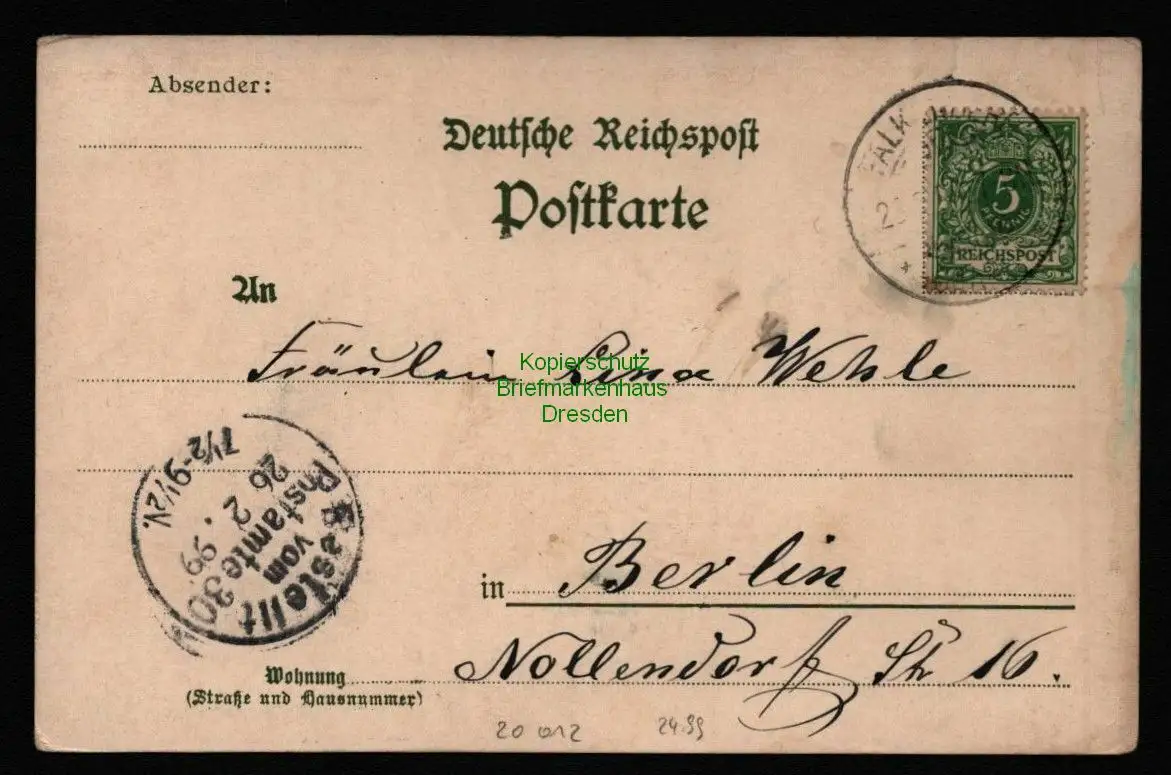 Absender:
Deutsche Reichspost
Postkarte
FALK
5
PFENNIG
REICHSPOST
An
Fräulein Lina Wehle
Kopierschutz
Briefmarkenhaus
Dresden
Bestellt
vom
Postamte 30
26 2. 99.
7 1/2-9 1/2 N.
in Berlin
Nollendorf Str 16.
Wohnung
(Straße und Hausnummer)
20 012 24.99